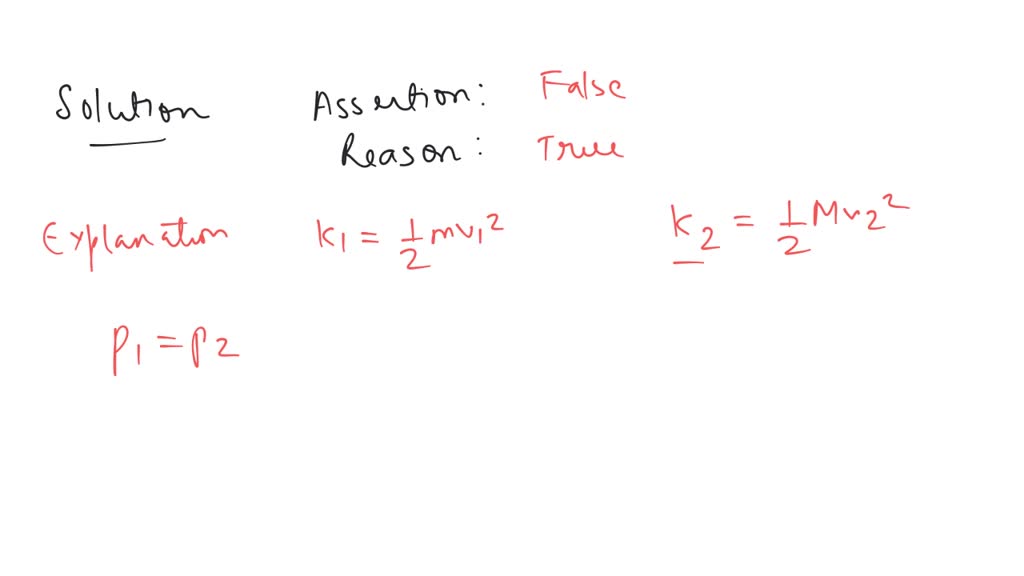 Solution Assertion: False
Reason: True
Explanation K₁ = 1/2 mv₁² K₂ = 1/2 Mv₂²
P₁ = P₂